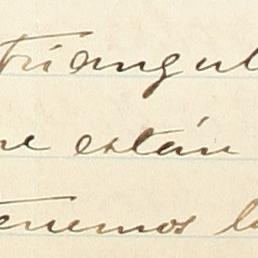 triangul
ne están
tenemos la